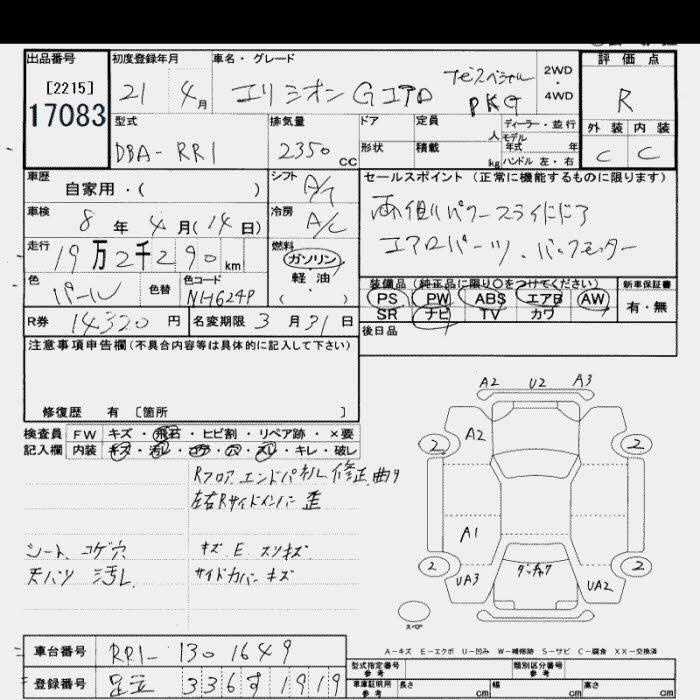 出品番号 初度登録年月 車名・グレード 評価点
[2215] 21 4月 エリシオン Gエアロ PKG 2WD・4WD R
17083
型式 排気量 ドア 定員 人 ディーラー・並行 外装 内装
DBA-RR1 2350cc 形状 積載 kg モデル年式 年 ハンドル 左・右 C C
車歴 シフト セールスポイント (正常に機能するものに限ります)
自家用・( ) A/T 両側パワースライドドア
車検 冷房
8年4月(14日) A/C エアロパーツ、バックモニター
走行 燃料
19万2千290km ガソリン
色 色替 色コード 軽油 装備品(純正品に限り○をつけてください) 新車保証書
パール NH624P ( ) PS PW ABS エアB AW 有・無
SR ナビ TV カワ
R券 14320円 名変期限 3月31日 後日品
注意事項申告欄(不具合内容等は具体的に記入して下さい)
修復歴 有 [箇所 ]
検査員 FW キズ・飛石・ヒビ割・リペア跡・×要
記入欄 内装 キズ・汚レ・コゲ・穴・スレ・キレ・破レ
Rフロア、エンドパネル修正、曲り
左右Rサイドメンバー歪
シート コゲ穴 キズ、E、スリキズ
天バリ 汚レ サイドカバーキズ
A2 U2 A3
2 A2 2
A1
2 UA3 UA2 2
スペア
A-キズ E-エクボ U-凹み W-補修跡 S-サビ C-腐食 XX-交換済
車台番号 RR1-1301649 型式指定番号 参考 類別区分番号 参考
登録番号 足立 336す1919 車庫証明用 参考 長さ cm 幅 cm 高さ cm